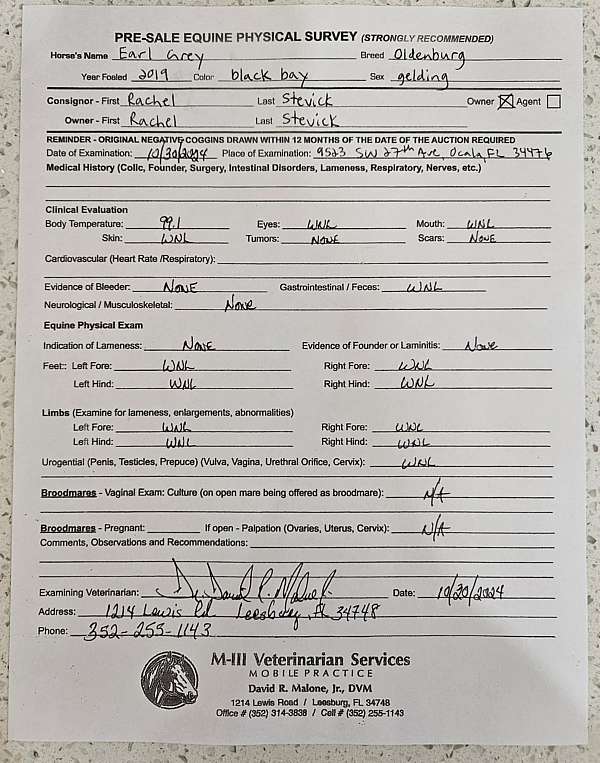 PRE-SALE EQUINE PHYSICAL SURVEY (STRONGLY RECOMMENDED)
Horse's Name Earl Grey Breed Oldenburg
Year Foaled 2019 Color black bay Sex gelding
Consignor - First Rachel Last Stevick Owner ☒ Agent ☐
Owner - First Rachel Last Stevick
REMINDER - ORIGINAL NEGATIVE COGGINS DRAWN WITHIN 12 MONTHS OF THE DATE OF THE AUCTION REQUIRED
Date of Examination: 10/20/2024 Place of Examination: 9523 SW 27th Ave, Ocala, FL 34476
Medical History (Colic, Founder, Surgery, Intestinal Disorders, Lameness, Respiratory, Nerves, etc.)
Clinical Evaluation
Body Temperature: 99.1 Eyes: WNL Mouth: WNL
Skin: WNL Tumors: NONE Scars: NONE
Cardiovascular (Heart Rate /Respiratory):
Evidence of Bleeder: NONE Gastrointestinal / Feces: WNL
Neurological / Musculoskeletal: None
Equine Physical Exam
Indication of Lameness: NONE Evidence of Founder or Laminitis: None
Feet:: Left Fore: WNL Right Fore: WNL
Left Hind: WNL Right Hind: WNL
Limbs (Examine for lameness, enlargements, abnormalities)
Left Fore: WNL Right Fore: WNL
Left Hind: WNL Right Hind: WNL
Urogential (Penis, Testicles, Prepuce) (Vulva, Vagina, Urethral Orifice, Cervix): WNL
Broodmares - Vaginal Exam: Culture (on open mare being offered as broodmare): N/A
Broodmares - Pregnant: If open - Palpation (Ovaries, Uterus, Cervix): N/A
Comments, Observations and Recommendations:
Examining Veterinarian: Dr. David R. Malone Jr. Date: 10/20/2024
Address: 1214 Lewis Rd Leesburg, FL 34748
Phone: 352-255-1143
M-III Veterinarian Services
MOBILE PRACTICE
David R. Malone, Jr., DVM
1214 Lewis Road / Leesburg, FL 34748
Office # (352) 314-3838 / Cell # (352) 255-1143